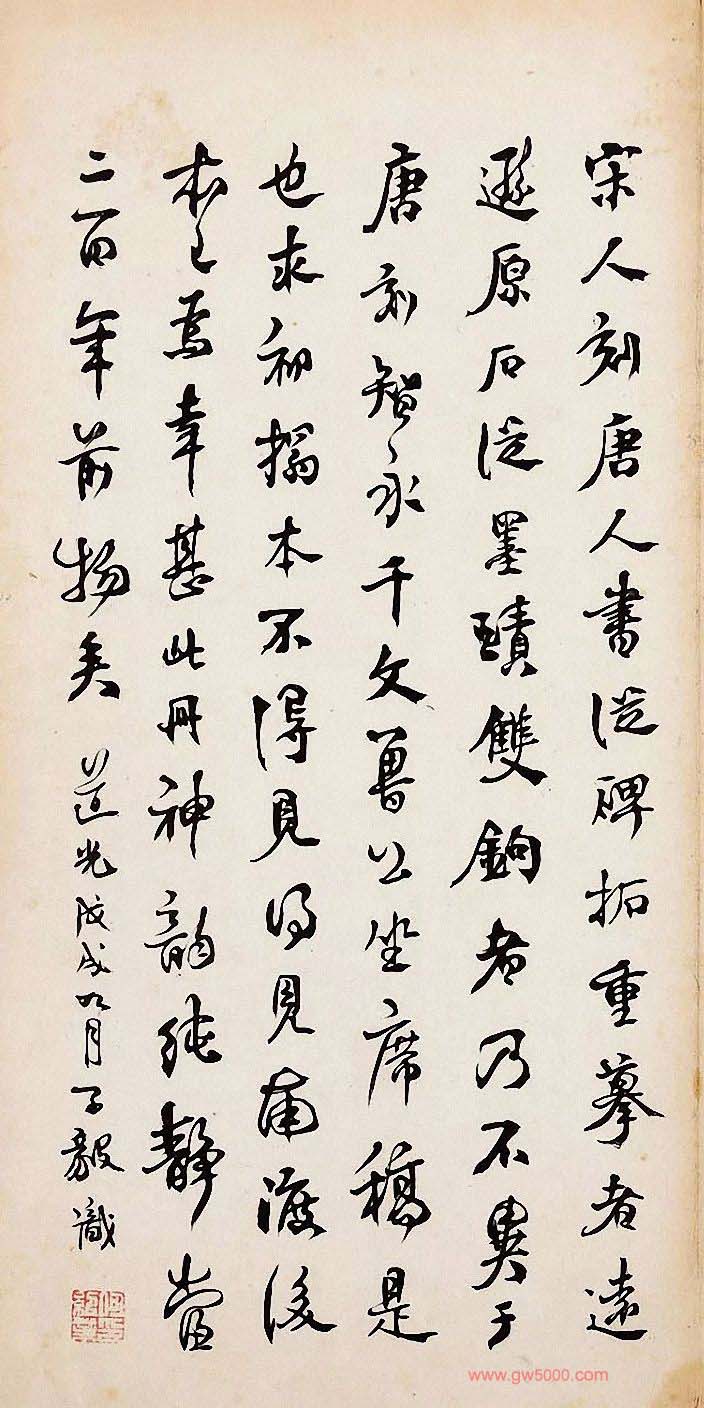 宋人刻唐人書從碑拓重摹者遠
遜原石從墨蹟雙鉤者乃不異于
唐刻智永千文魯公坐席稿是
也求初搨本不得見得見南渡後
本已為幸甚此冊神韻純靜當
二百年前物矣 道光戊戌九月子毅識
www.gw5000.com